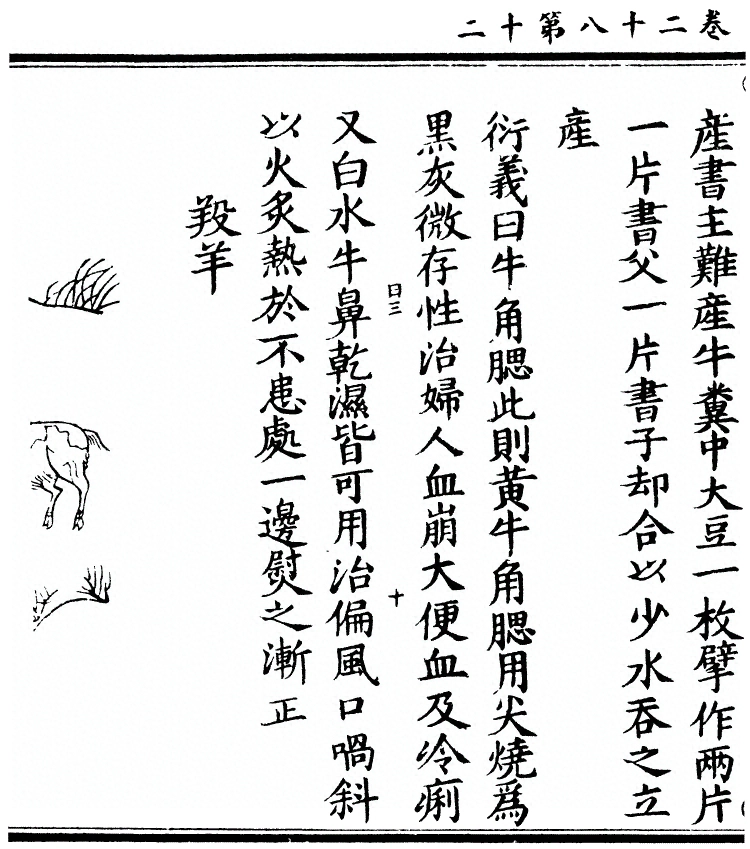 卷二十八第十二
産書主難産牛糞中大豆一枚擘作兩片
一片書父一片書子却合以少水吞之立
産
衍義曰牛角腮此則黄牛角腮用尖燒爲
黒灰微存性治婦人血崩大便血及冷痢
日三
十
又白水牛鼻乾濕皆可用治偏風口喎斜
以火炙熱於不患處一邊熨之漸正
羖羊